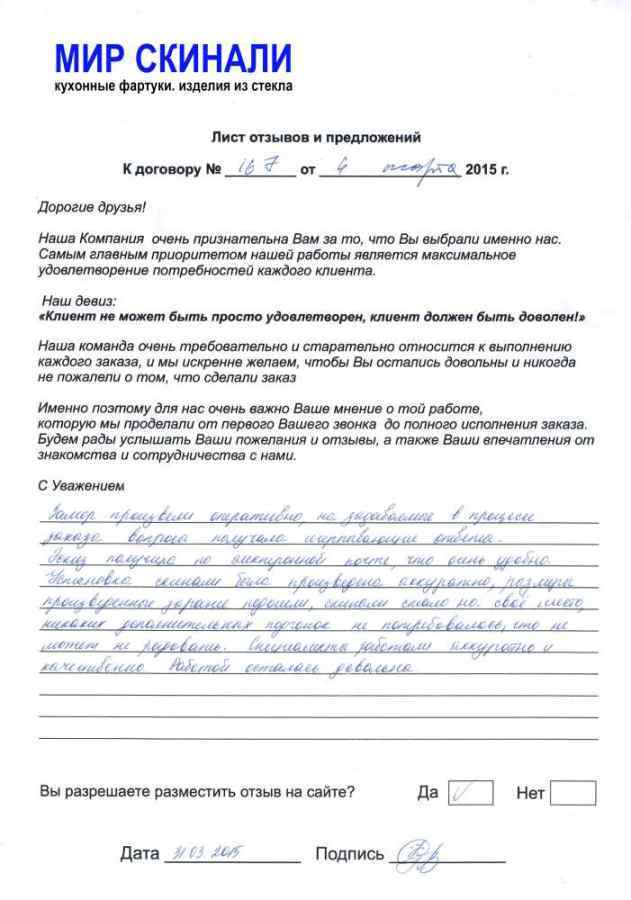 МИР СКИНАЛИ
кухонные фартуки. изделия из стекла
Лист отзывов и предложений
К договору № 167 от 4 марта 2015 г.
Дорогие друзья!
Наша Компания очень признательна Вам за то, что Вы выбрали именно нас.
Самым главным приоритетом нашей работы является максимальное
удовлетворение потребностей каждого клиента.
Наш девиз:
«Клиент не может быть просто удовлетворен, клиент должен быть доволен!»
Наша команда очень требовательно и старательно относится к выполнению
каждого заказа, и мы искренне желаем, чтобы Вы остались довольны и никогда
не пожалели о том, что сделали заказ
Именно поэтому для нас очень важно Ваше мнение о той работе,
которую мы проделали от первого Вашего звонка до полного исполнения заказа.
Будем рады услышать Ваши пожелания и отзывы, а также Ваши впечатления от
знакомства и сотрудничества с нами.
С Уважением
Замер произвели оперативно, на задаваемые в процессе
заказа вопросы получала исчерпывающие ответы.
Эскиз получила по электронной почте, что очень удобно.
Установка скинали была произведена аккуратно, размеры
произведенные заранее подошли, скинали стало на свое место,
никаких дополнительных подгонок не потребовалось, что не
может не радовать. Специалисты работали аккуратно и
качественно Работой осталась довольна
Вы разрешаете разместить отзыв на сайте? Да Нет
Дата 31.03.2015 Подпись